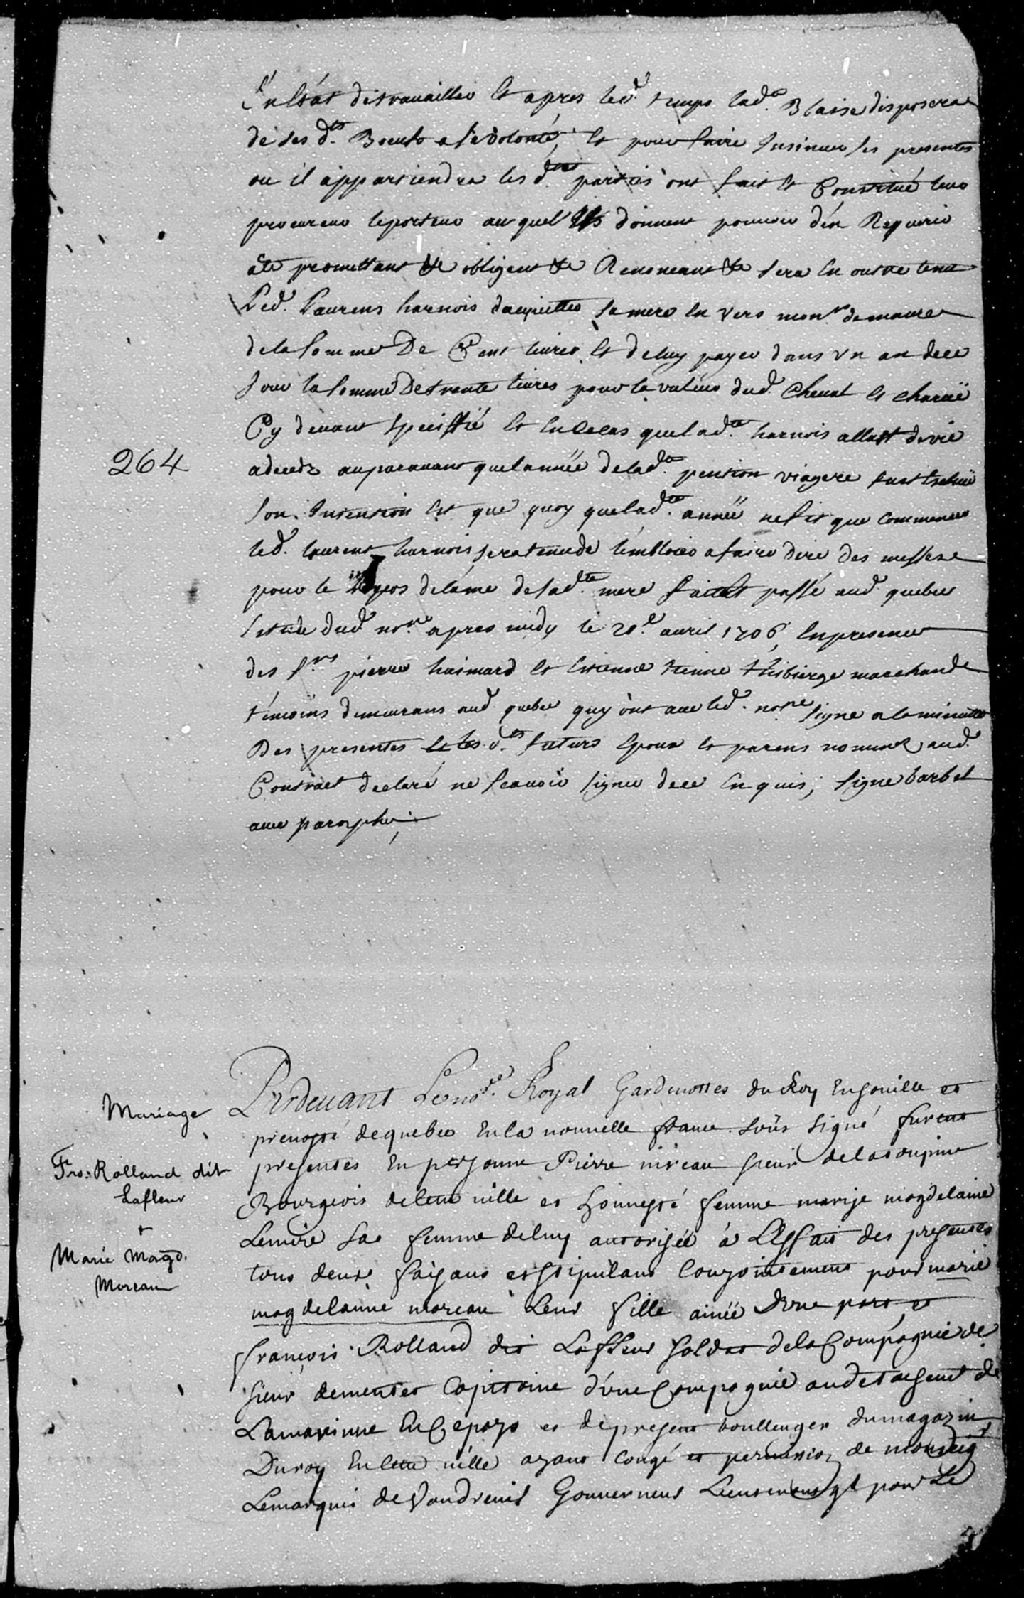 En Estat de travailler Et apres led. temps lad.e Blaise disposera
de ses d.ts Boeufs a sa volonté, Et pour faire Insinuer ses presentes
ou il appartiendra les d. parties ont fait Et Constitué leur
procureur le porteur auquel Ils donnent pouvoir d'en Requerir
acte promettant &c obligent &c Renonceant &c sera En outre tenu
Led. Laurens harnois daquitter sa mere En vers mons.r
de la somme De Cent livres Et de luy payer dans Un an de ce
Jour la somme De trente livres pour la valeur dud. Cheval Et charuë
Cy devant speciffié Et En Ce cas que lad.te harnois allast de vie
a deceds auparavant que lannée de lad.te pention viagere fust
son Intention Est que quoy que lad.te année ne fit que commencer
led. laurent harnois sera tenu de lemploier a faire dire des messes
pour le Repos de lame de sad.te mere fait Et passé aud. quebec
Estude dud. no.re apres midy le 20.e auril 1706 En presence
des s.rs pierre haimard Et Estienne thibierge marchands
témoins demeurans aud. quebec quy ont avec led. no.re signe a la minutte
Des presentes Et les d.ts futurs Epoux Et parens nommez aud.
Contract declaré ne scavoir signer de ce Enquis; signe barbel
avec paraphe;
264
Mariage
Fro: Rolland dit
Lafleur
+
Marie Magd.
Moreau
Pardevant Le no.re Royal Gardenottes du Roy En sa ville et
prevosté de quebec En la nouvelle france sous signé furent
presentes En personne Pierre moreau sieur de la
Bourgeois de cette ville et honneste femme marije magdelaine
Lemire sa femme de luy autorisée à L'Effait des presentes
tous deux faisans et stipulans Conjointement pour marie
magdelainne moreau Leur fille ainée d'une part et
françois Rolland dit Lafleur soldat de la Compagnie de
sieur Capitaine d'une Compagnie au detachement de
Lamarinne En Ce pays et de present boullenger du magazin
Du roy En cette ville ayant Congé et permission de
Lemarquis de Vaudreuil Gouverneur Lieutenant gl pour Le